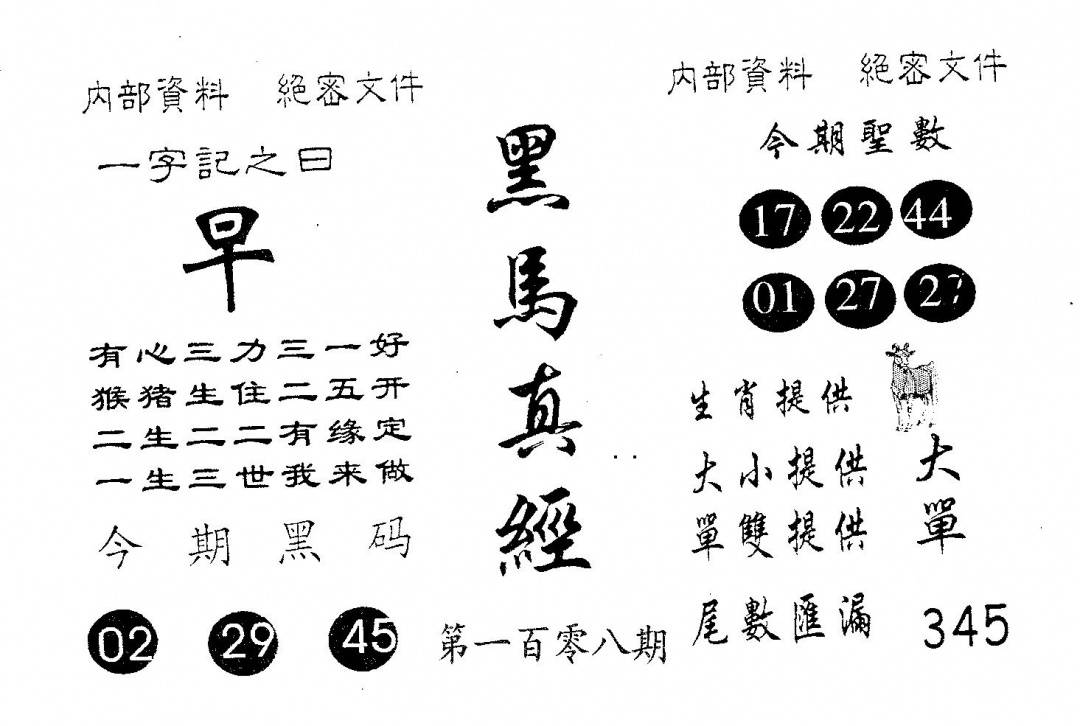 内部資料 絕密文件
一字記之曰
早
有心三力三一好
猴猪生住二五开
二生二二有缘定
一生三世我来做
今期黑码
02 29 45
黑馬真經
第一百零八期
内部資料 絕密文件
今期聖數
17 22 44
01 27
生肖提供
大小提供 大
單雙提供 單
尾數匯漏 345